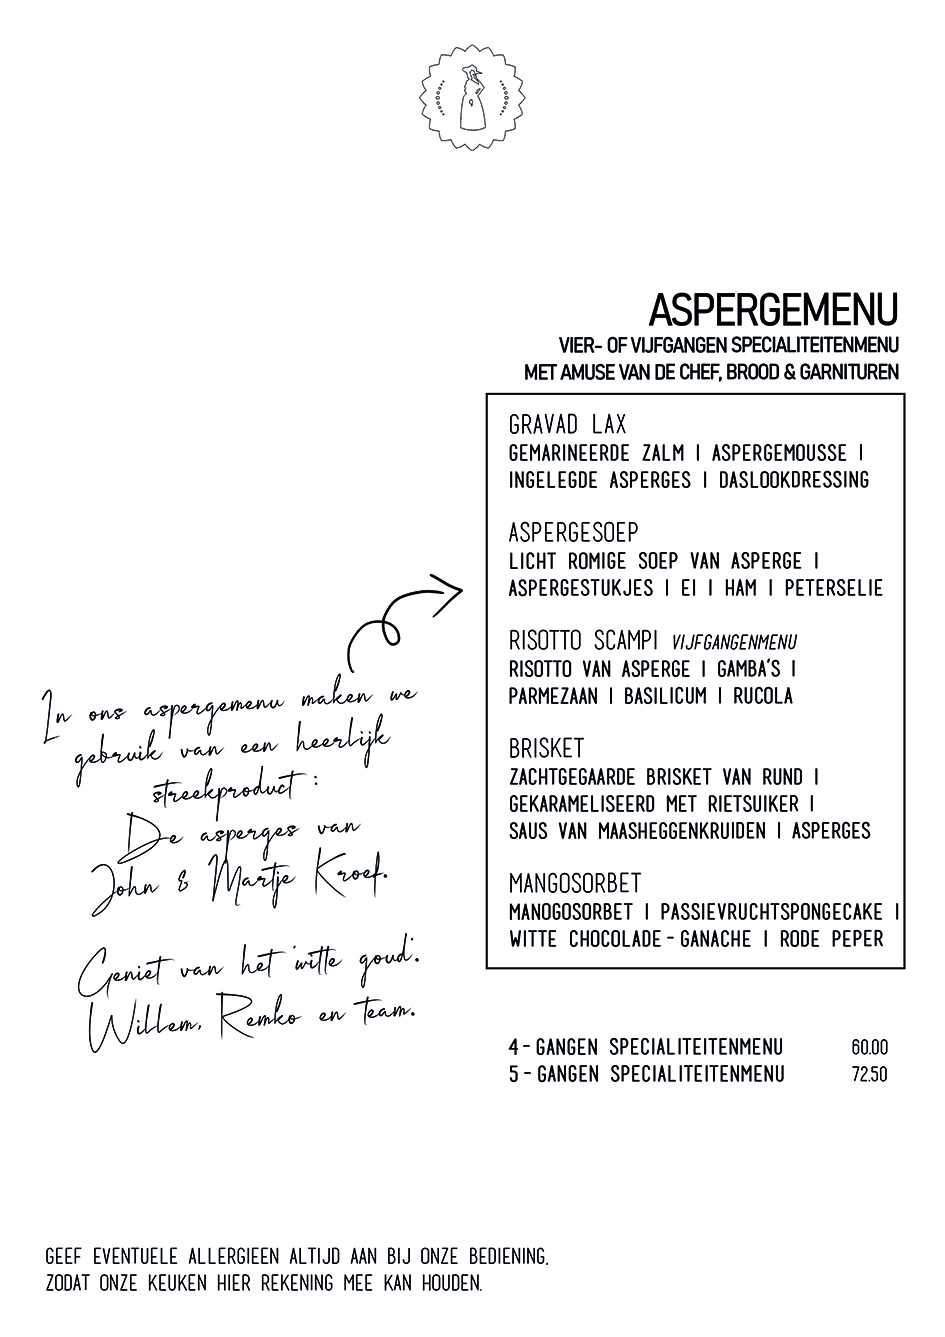 ASPERGEMENU
VIER- OF VIJFGANGEN SPECIALITEITENMENU
MET AMUSE VAN DE CHEF, BROOD & GARNITUREN
GRAVAD LAX
GEMARINEERDE ZALM | ASPERGEMOUSSE |
INGELEGDE ASPERGES | DASLOOKDRESSING
ASPERGESOEP
LICHT ROMIGE SOEP VAN ASPERGE |
ASPERGESTUKJES | EI | HAM | PETERSELIE
RISOTTO SCAMPI VIJFGANGENMENU
RISOTTO VAN ASPERGE | GAMBA'S |
PARMEZAAN | BASILICUM | RUCOLA
BRISKET
ZACHTGEGAARDE BRISKET VAN RUND |
GEKARAMELISEERD MET RIETSUIKER |
SAUS VAN MAASHEGGENKRUIDEN | ASPERGES
MANGOSORBET
MANOGOSORBET | PASSIEVRUCHTSPONGECAKE |
WITTE CHOCOLADE - GANACHE | RODE PEPER
In ons aspergemenu maken we
gebruik van een heerlijk
streekproduct :
De asperges van
John & Martje Kroef.
Geniet van het 'witte goud'.
Willem, Remko en team.
4 - GANGEN SPECIALITEITENMENU 60.00
5 - GANGEN SPECIALITEITENMENU 72.50
GEEF EVENTUELE ALLERGIEEN ALTIJD AAN BIJ ONZE BEDIENING,
ZODAT ONZE KEUKEN HIER REKENING MEE KAN HOUDEN.